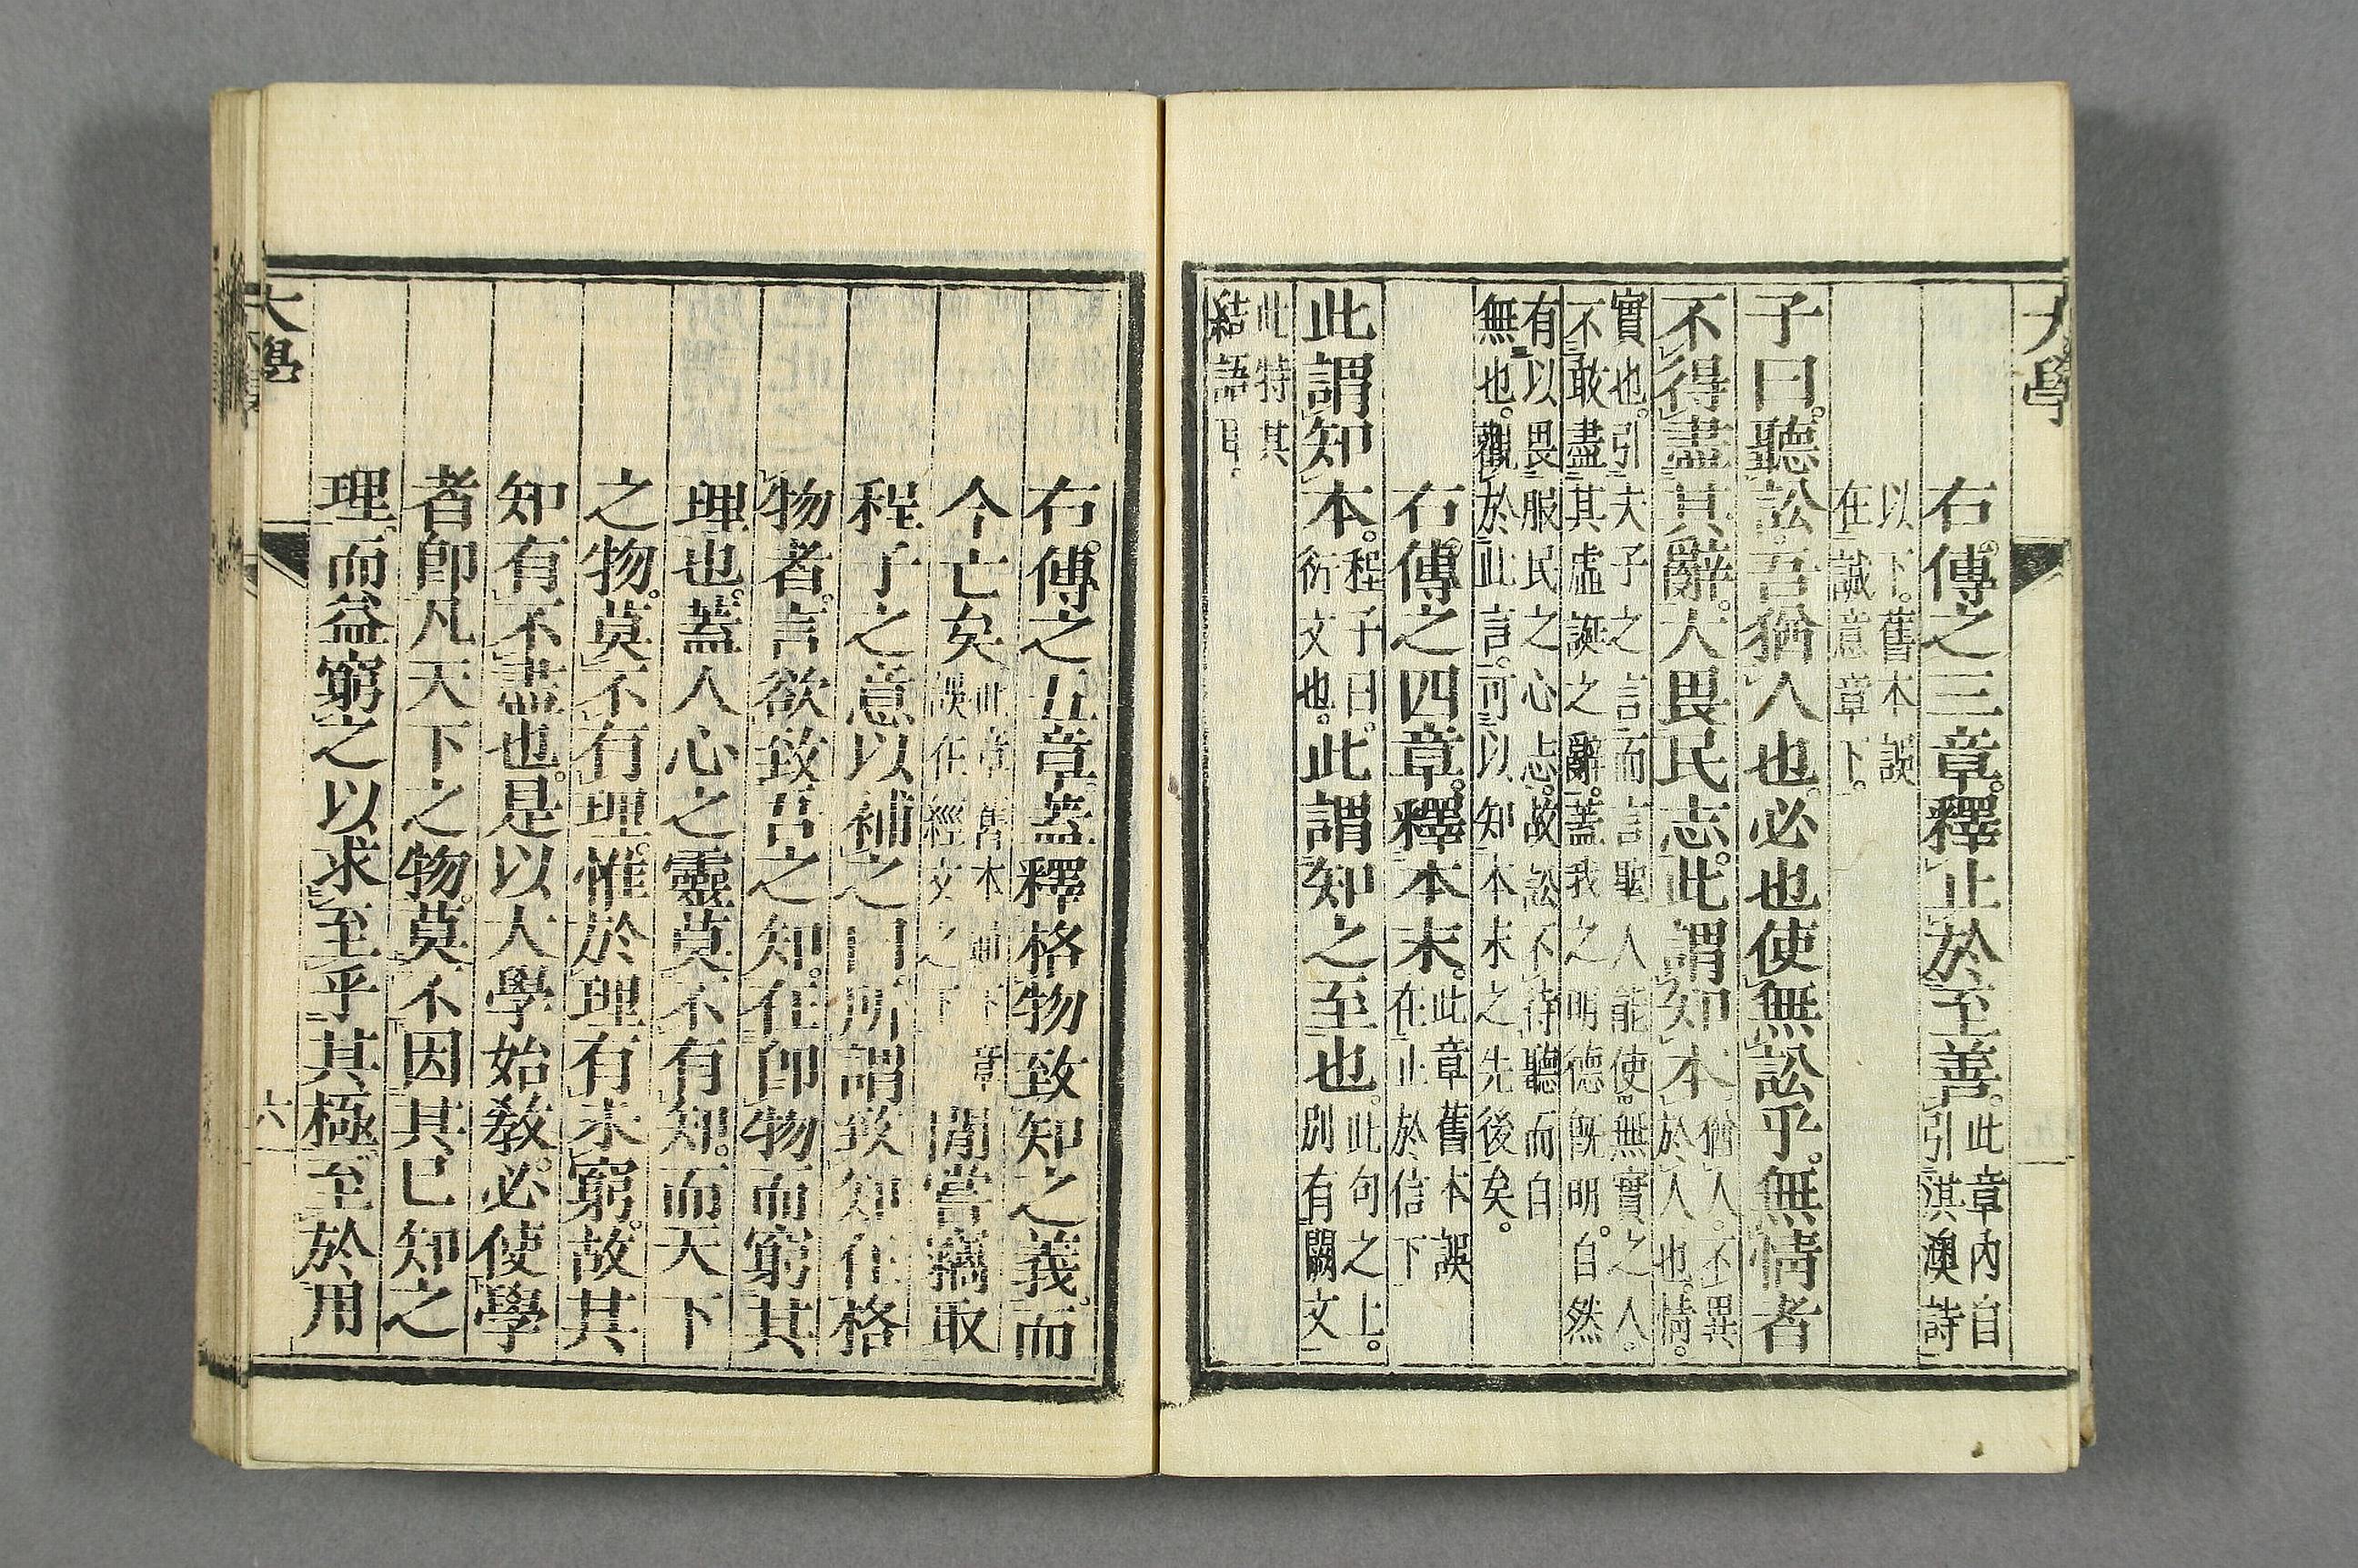 大學
右傳之三章。釋止於至善。此章內自引淇澳詩
以下。舊本誤在誠意章下。
子曰。聽訟。吾猶人也。必也使無訟乎。無情者
不得盡其辭。大畏民志。此謂知本。猶人。不異於人也。情。
實也。引夫子之言而言聖人能使無實之人。不敢盡其虛誕之辭。蓋我之明德旣明。自然
有以畏服民之心志。故訟不待聽而自無也。觀於此言。可以知本末之先後矣。
右傳之四章。釋本末。此章舊本誤在止於信下
此謂知本。程子曰。衍文也。此謂知之至也。此句之上。別有闕文
此特其結語耳。
右傳之五章。蓋釋格物致知之義。而
今亡矣此章舊本通下章誤在經文之下閒嘗竊取
程子之意以補之曰。所謂致知在格
物者。言欲致吾之知。在卽物而窮其
理也。蓋人心之靈莫不有知。而天下
之物。莫不有理。惟於理有未窮。故其
知有不盡也。是以大學始敎。必使學
者卽凡天下之物。莫不因其已知之
理而益窮之以求至乎其極。至於用
大學
六